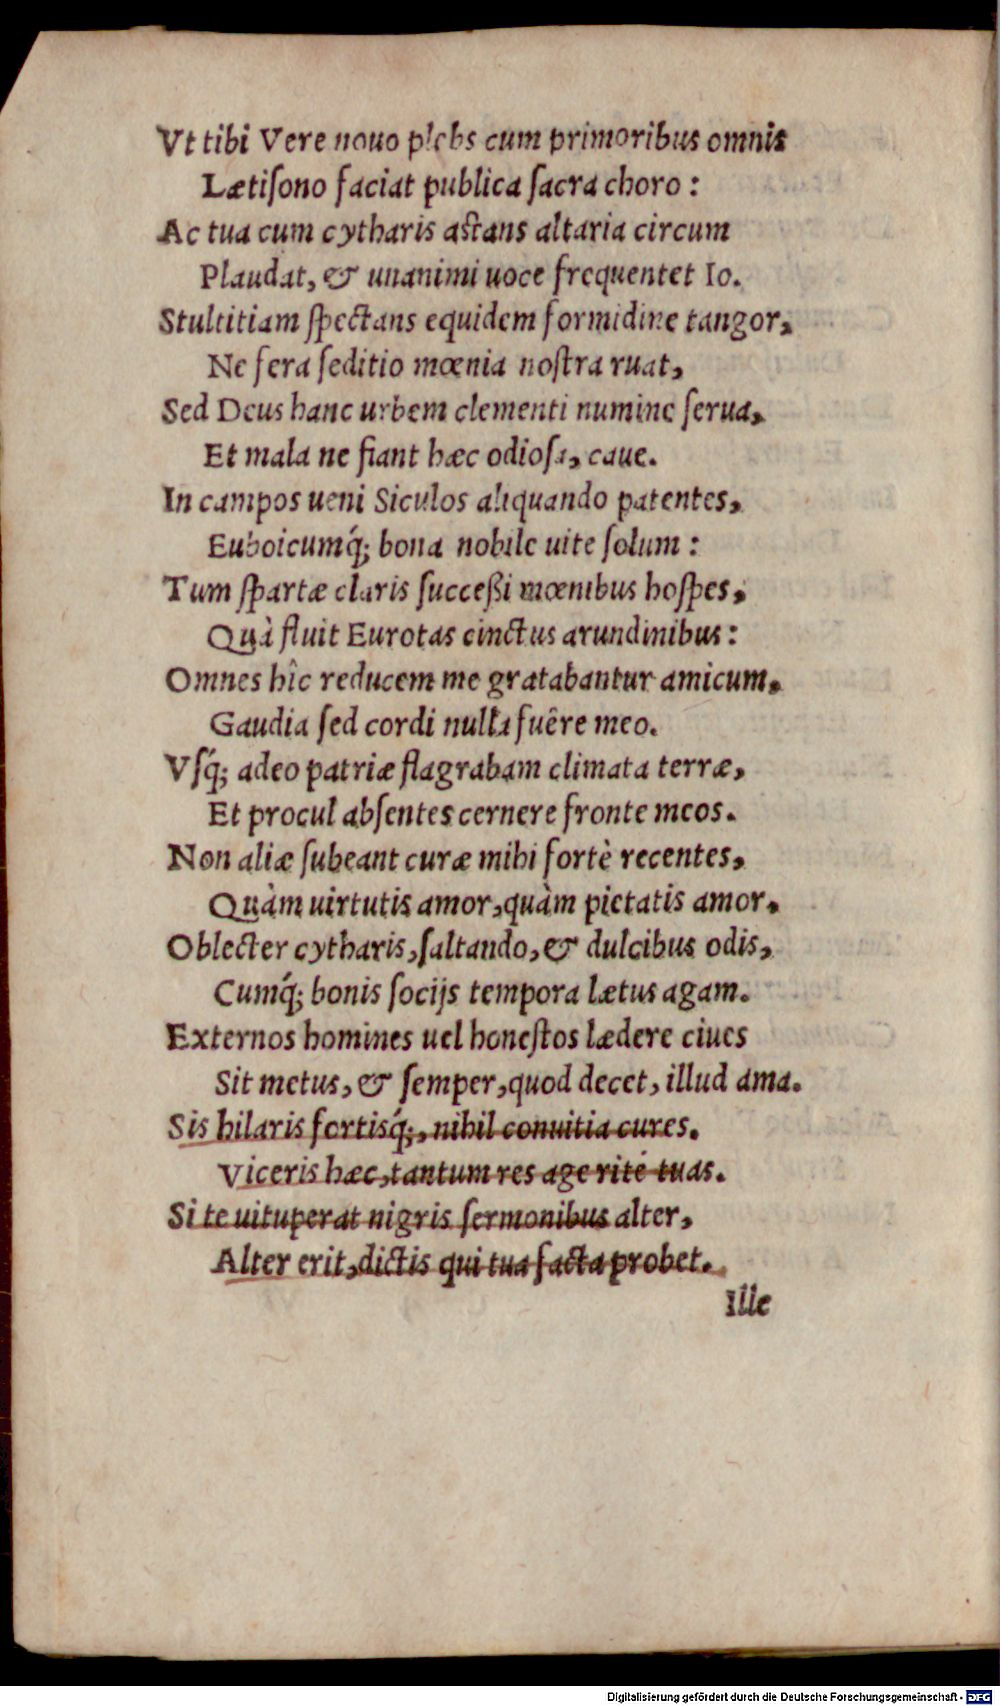 Vt tibi Vere nouo plebs cum primoribus omnis
Lætiſono faciat publica ſacra choro :
Ac tua cum cytharis aſtans altaria circum
Plaudat, & unanimi uoce frequentet Io.
Stultitiam ſpectans equidem formidine tangor,
Ne fera ſeditio mœnia noſtra ruat,
Sed Deus hanc urbem clementi numine ſerua,
Et mala ne fiant hæc odioſa, caue.
In campos ueni Siculos aliquando patentes,
Euboicumq́; bona nobile uite ſolum :
Tum ſpartæ claris ſucceßi mœnibus hoſpes,
Quà fluit Eurotas cinctus arundinibus :
Omnes hîc reducem me gratabantur amicum,
Gaudia ſed cordi nulla fuêre meo.
Vſq́; adeo patriæ flagrabam climata terræ,
Et procul abſentes cernere fronte meos.
Non aliæ ſubeant curæ mihi fortè recentes,
Quàm uirtutis amor, quàm pietatis amor.
Oblecter cytharis, ſaltando, & dulcibus odis,
Cumq́; bonis ſocijs tempora lætus agam.
Externos homines uel honeſtos lædere ciues
Sit metus, & ſemper, quod decet, illud ama.
Sis hilaris fortisq́;, nihil conuitia cures.
Viceris hæc, tantum res age ritè tuas.
Si te uituperat nigris ſermonibus alter,
Alter erit, dictis qui tua facta probet.
Ille
Digitalisierung gefördert durch die Deutsche Forschungsgemeinschaft - DFG